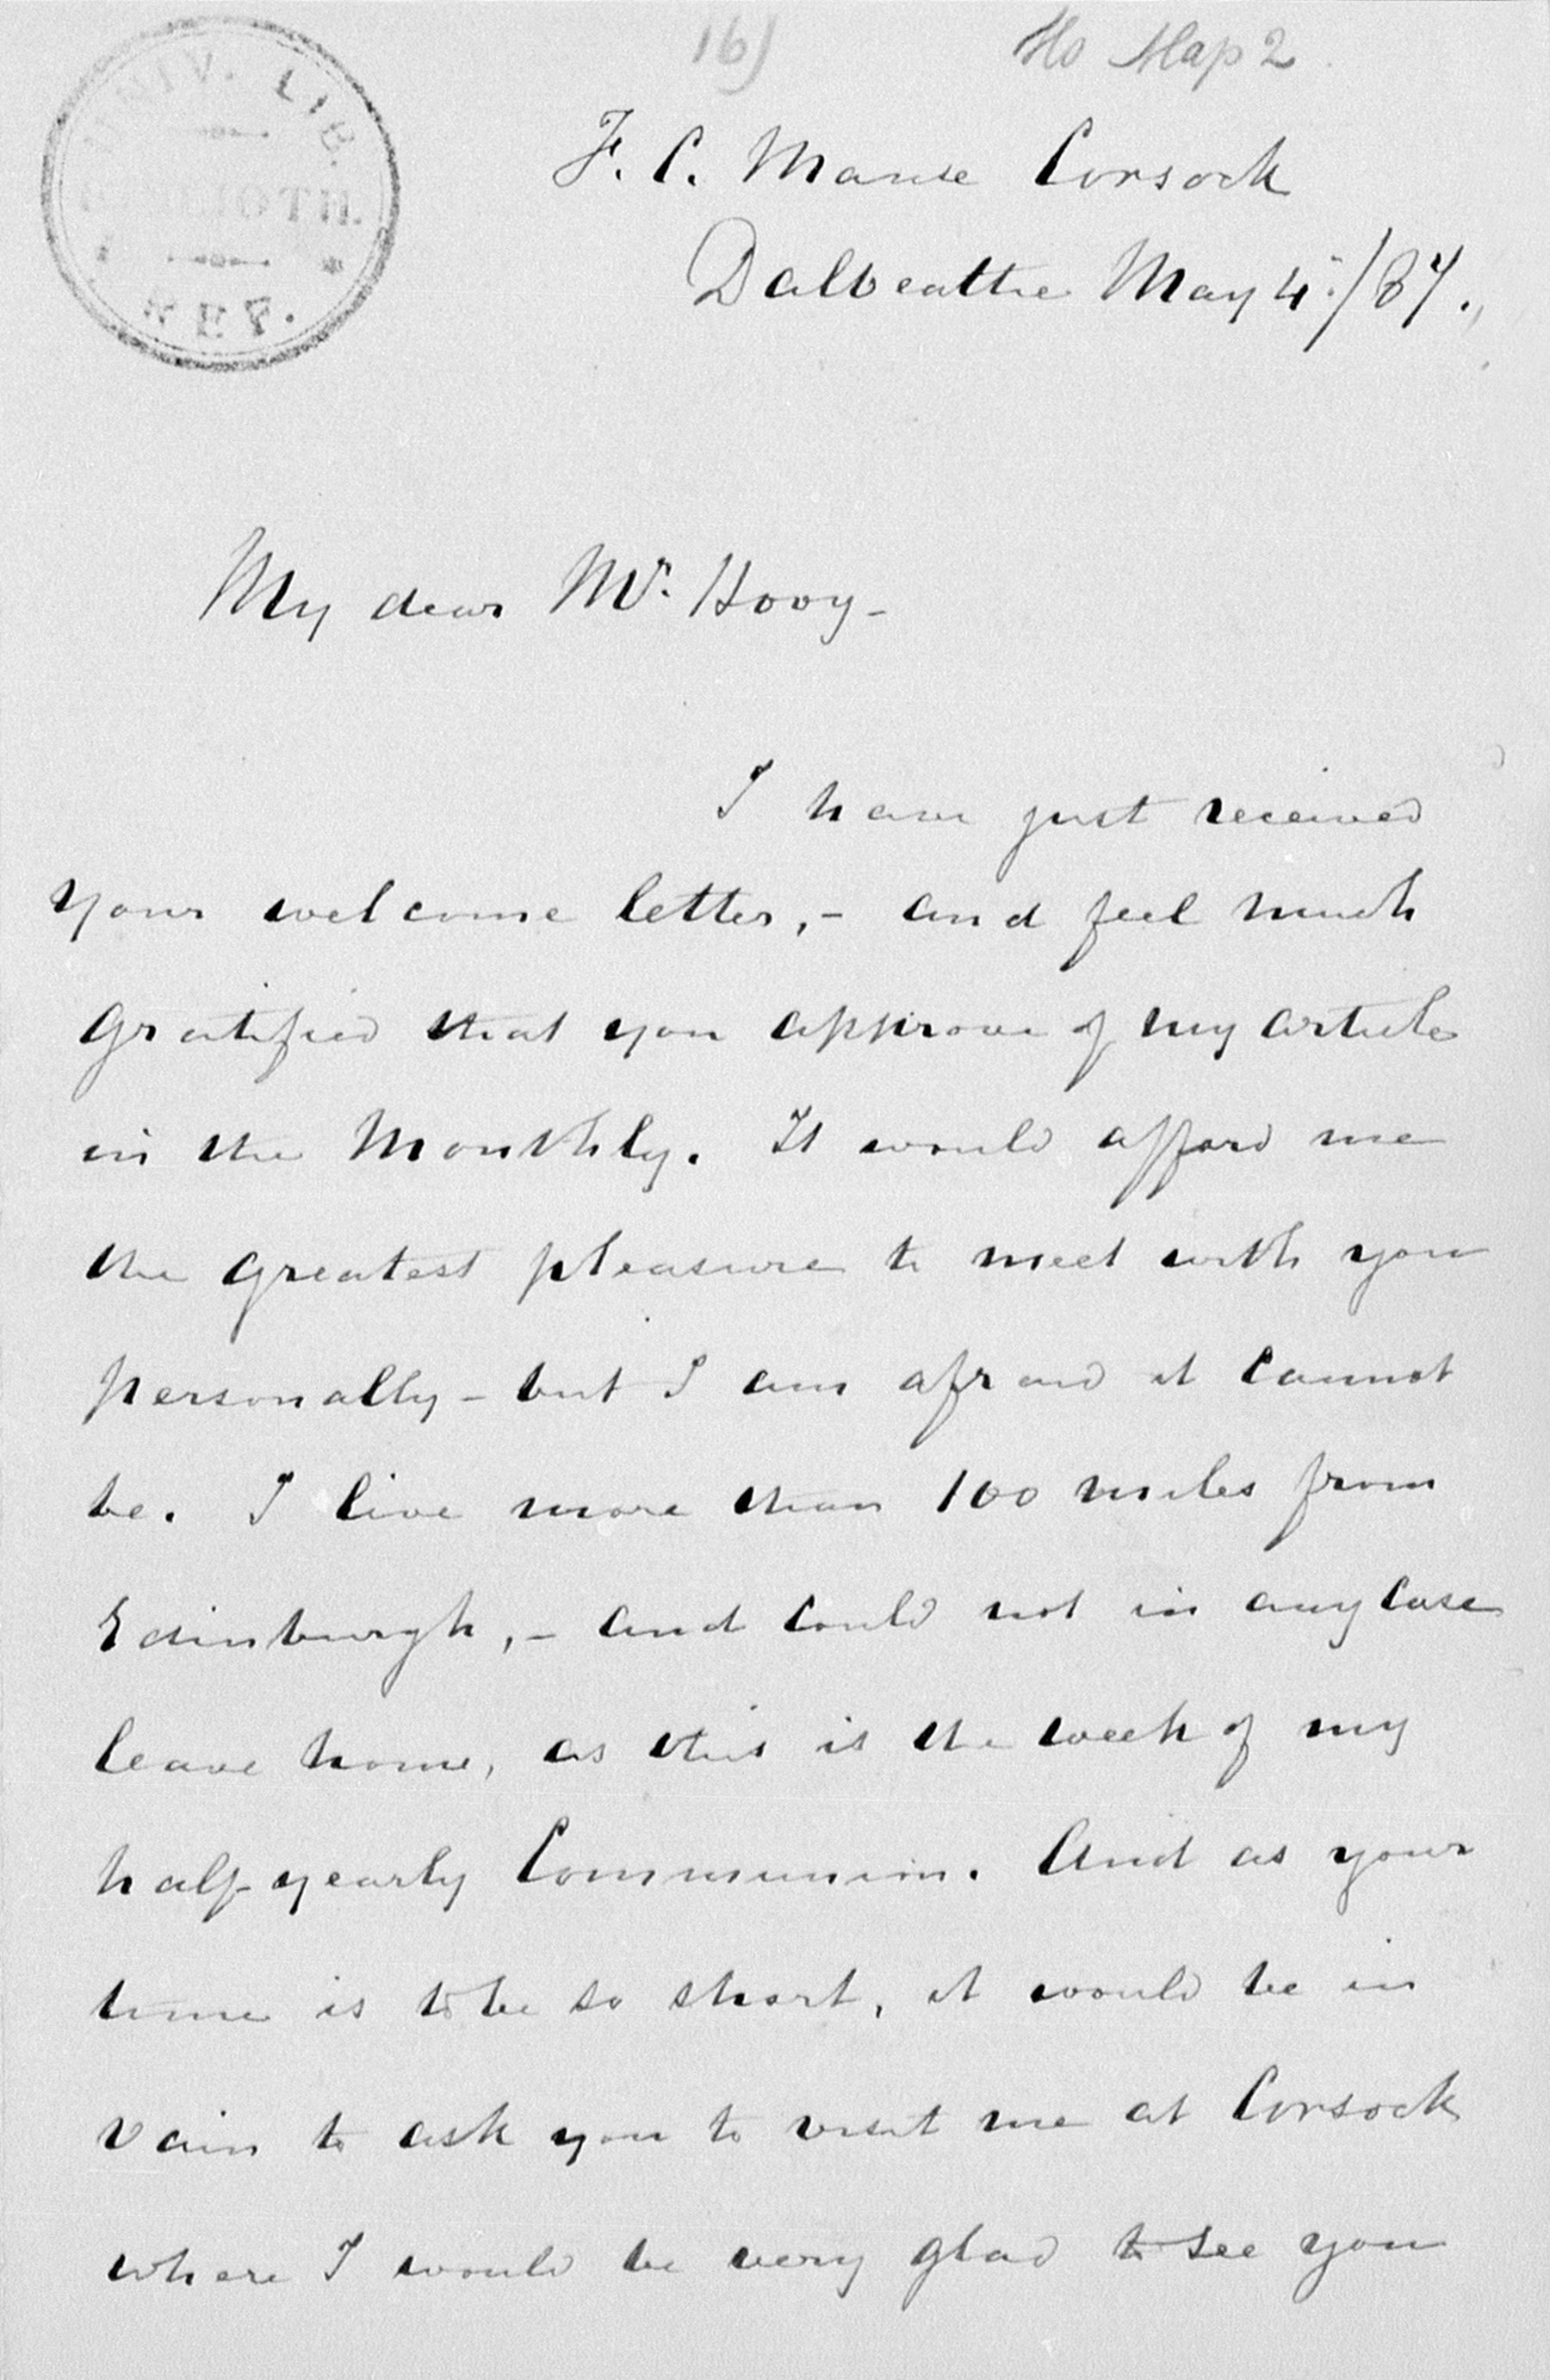 16)
Ho Map 2
UNIV. LIB.
BIBLIOTH.
F. C. Manse Corsock
Dalbeattie May 4./87.
My dear Mr. Hovy-
I have just received
your welcome letter,- and feel much
gratified that you approve of my article
in the Monthly. It would afford me
the greatest pleasure to meet with you
personally - but I am afraid it cannot
be. I live more than 100 miles from
Edinburgh,- and could not in any case
leave home, as this is the week of my
half-yearly Communion. And as your
time is to be so short, it would be in
vain to ask you to visit me at Corsock
where I would be very glad to see you